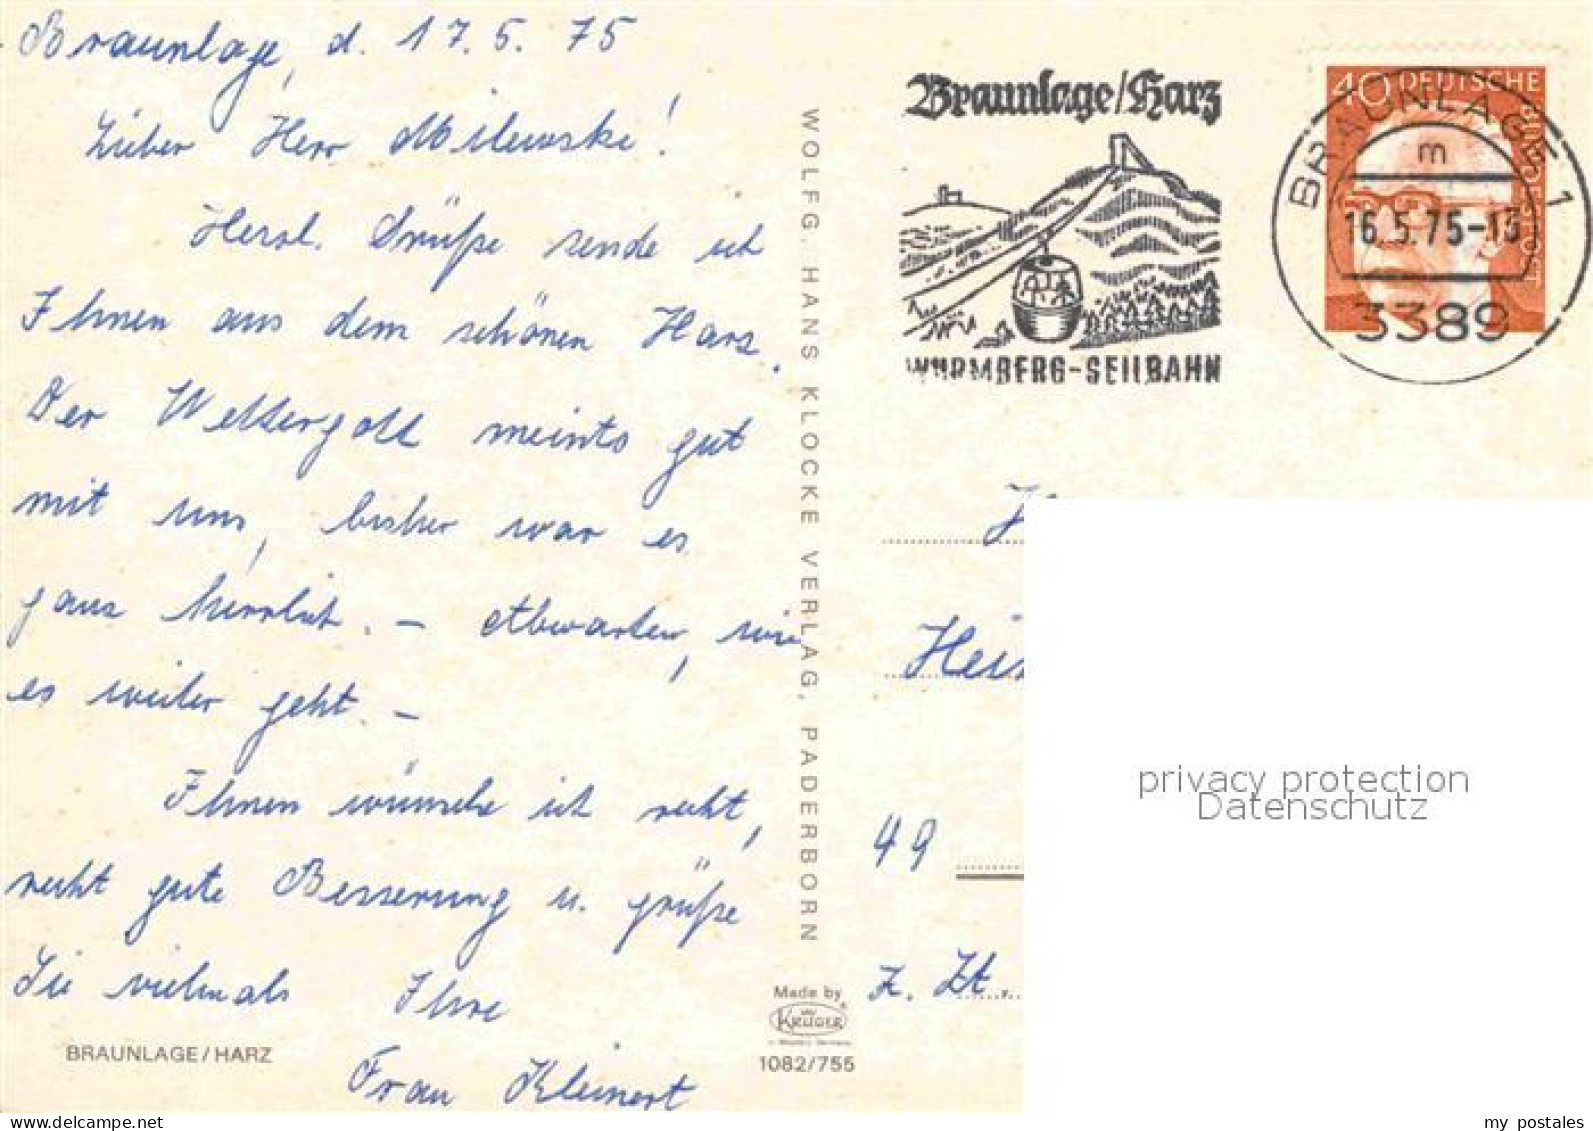 Braunlage, d. 17.5.75
Lieber Herr Milewski!
Herzl. Grüße sende ich
Ihnen aus dem schönen Harz.
Der Wettergott meints gut
mit uns, bisher war es
ganz herrlich. – Abwarten, wie
es weiter geht. –
Ihnen wünsche ich recht,
recht gute Besserung u. grüße
Sie vielmals Ihre
Frau Kleinert
BRAUNLAGE/HARZ
WOLFG. HANS KLOCKE VERLAG, PADERBORN
Made by
KRÜGER
1082/755
Braunlage/Harz
WURMBERG-SEILBAHN
40 DEUTSCHE
BRAUNLAGE 1
m
16.5.75-15
3389
49
z. Zt.
privacy protection
Datenschutz
my postales